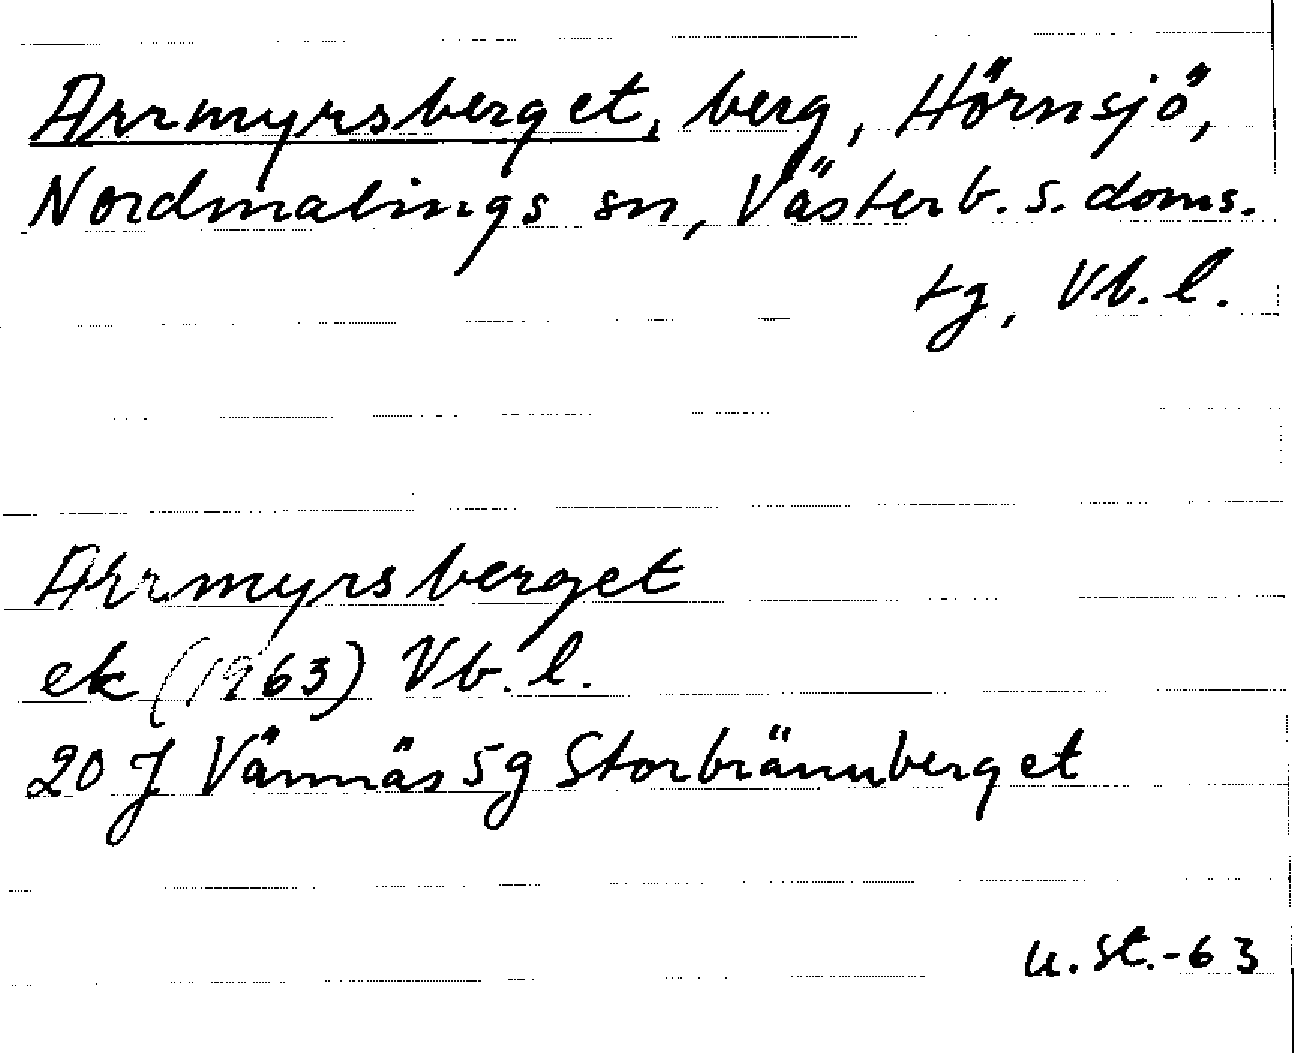 Arrmyrsberget, berg, Hörnsjö,
Nordmalings sn, Västerb. s. doms.
tg, Vb. l.
Arrmyrsberget
ek (1963) Vb. l.
20 J Vännäs 5g Storbrännberget
u. St.-63